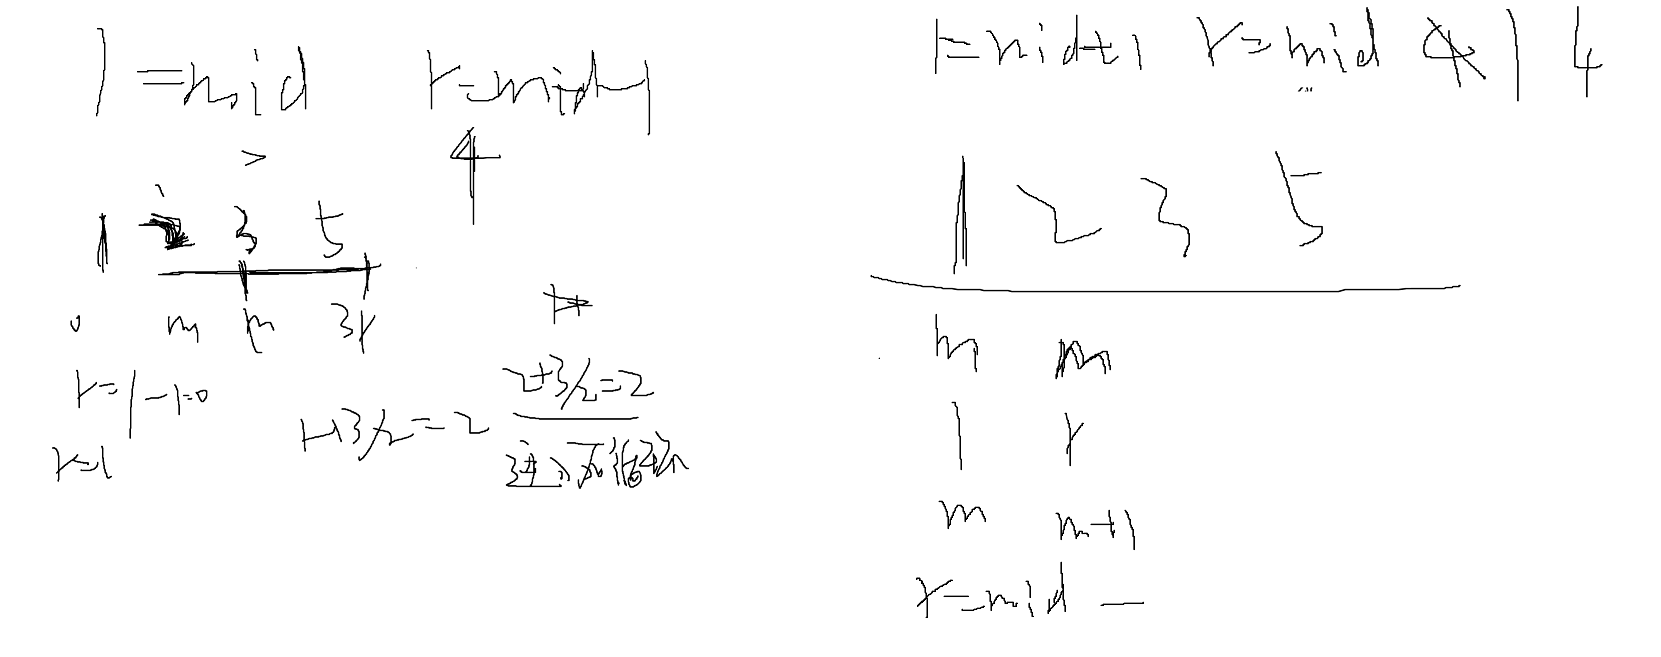 l=mid r=mid-1
> 4
1 2 3 5
0 m m 3r
r=1-1=0
r=1
1+3/2=2
2+3/2=2
进入死循环
l=mid+1 r=mid 4 1 4
1 2 3 5
m m
l r
m m+1
r=mid —